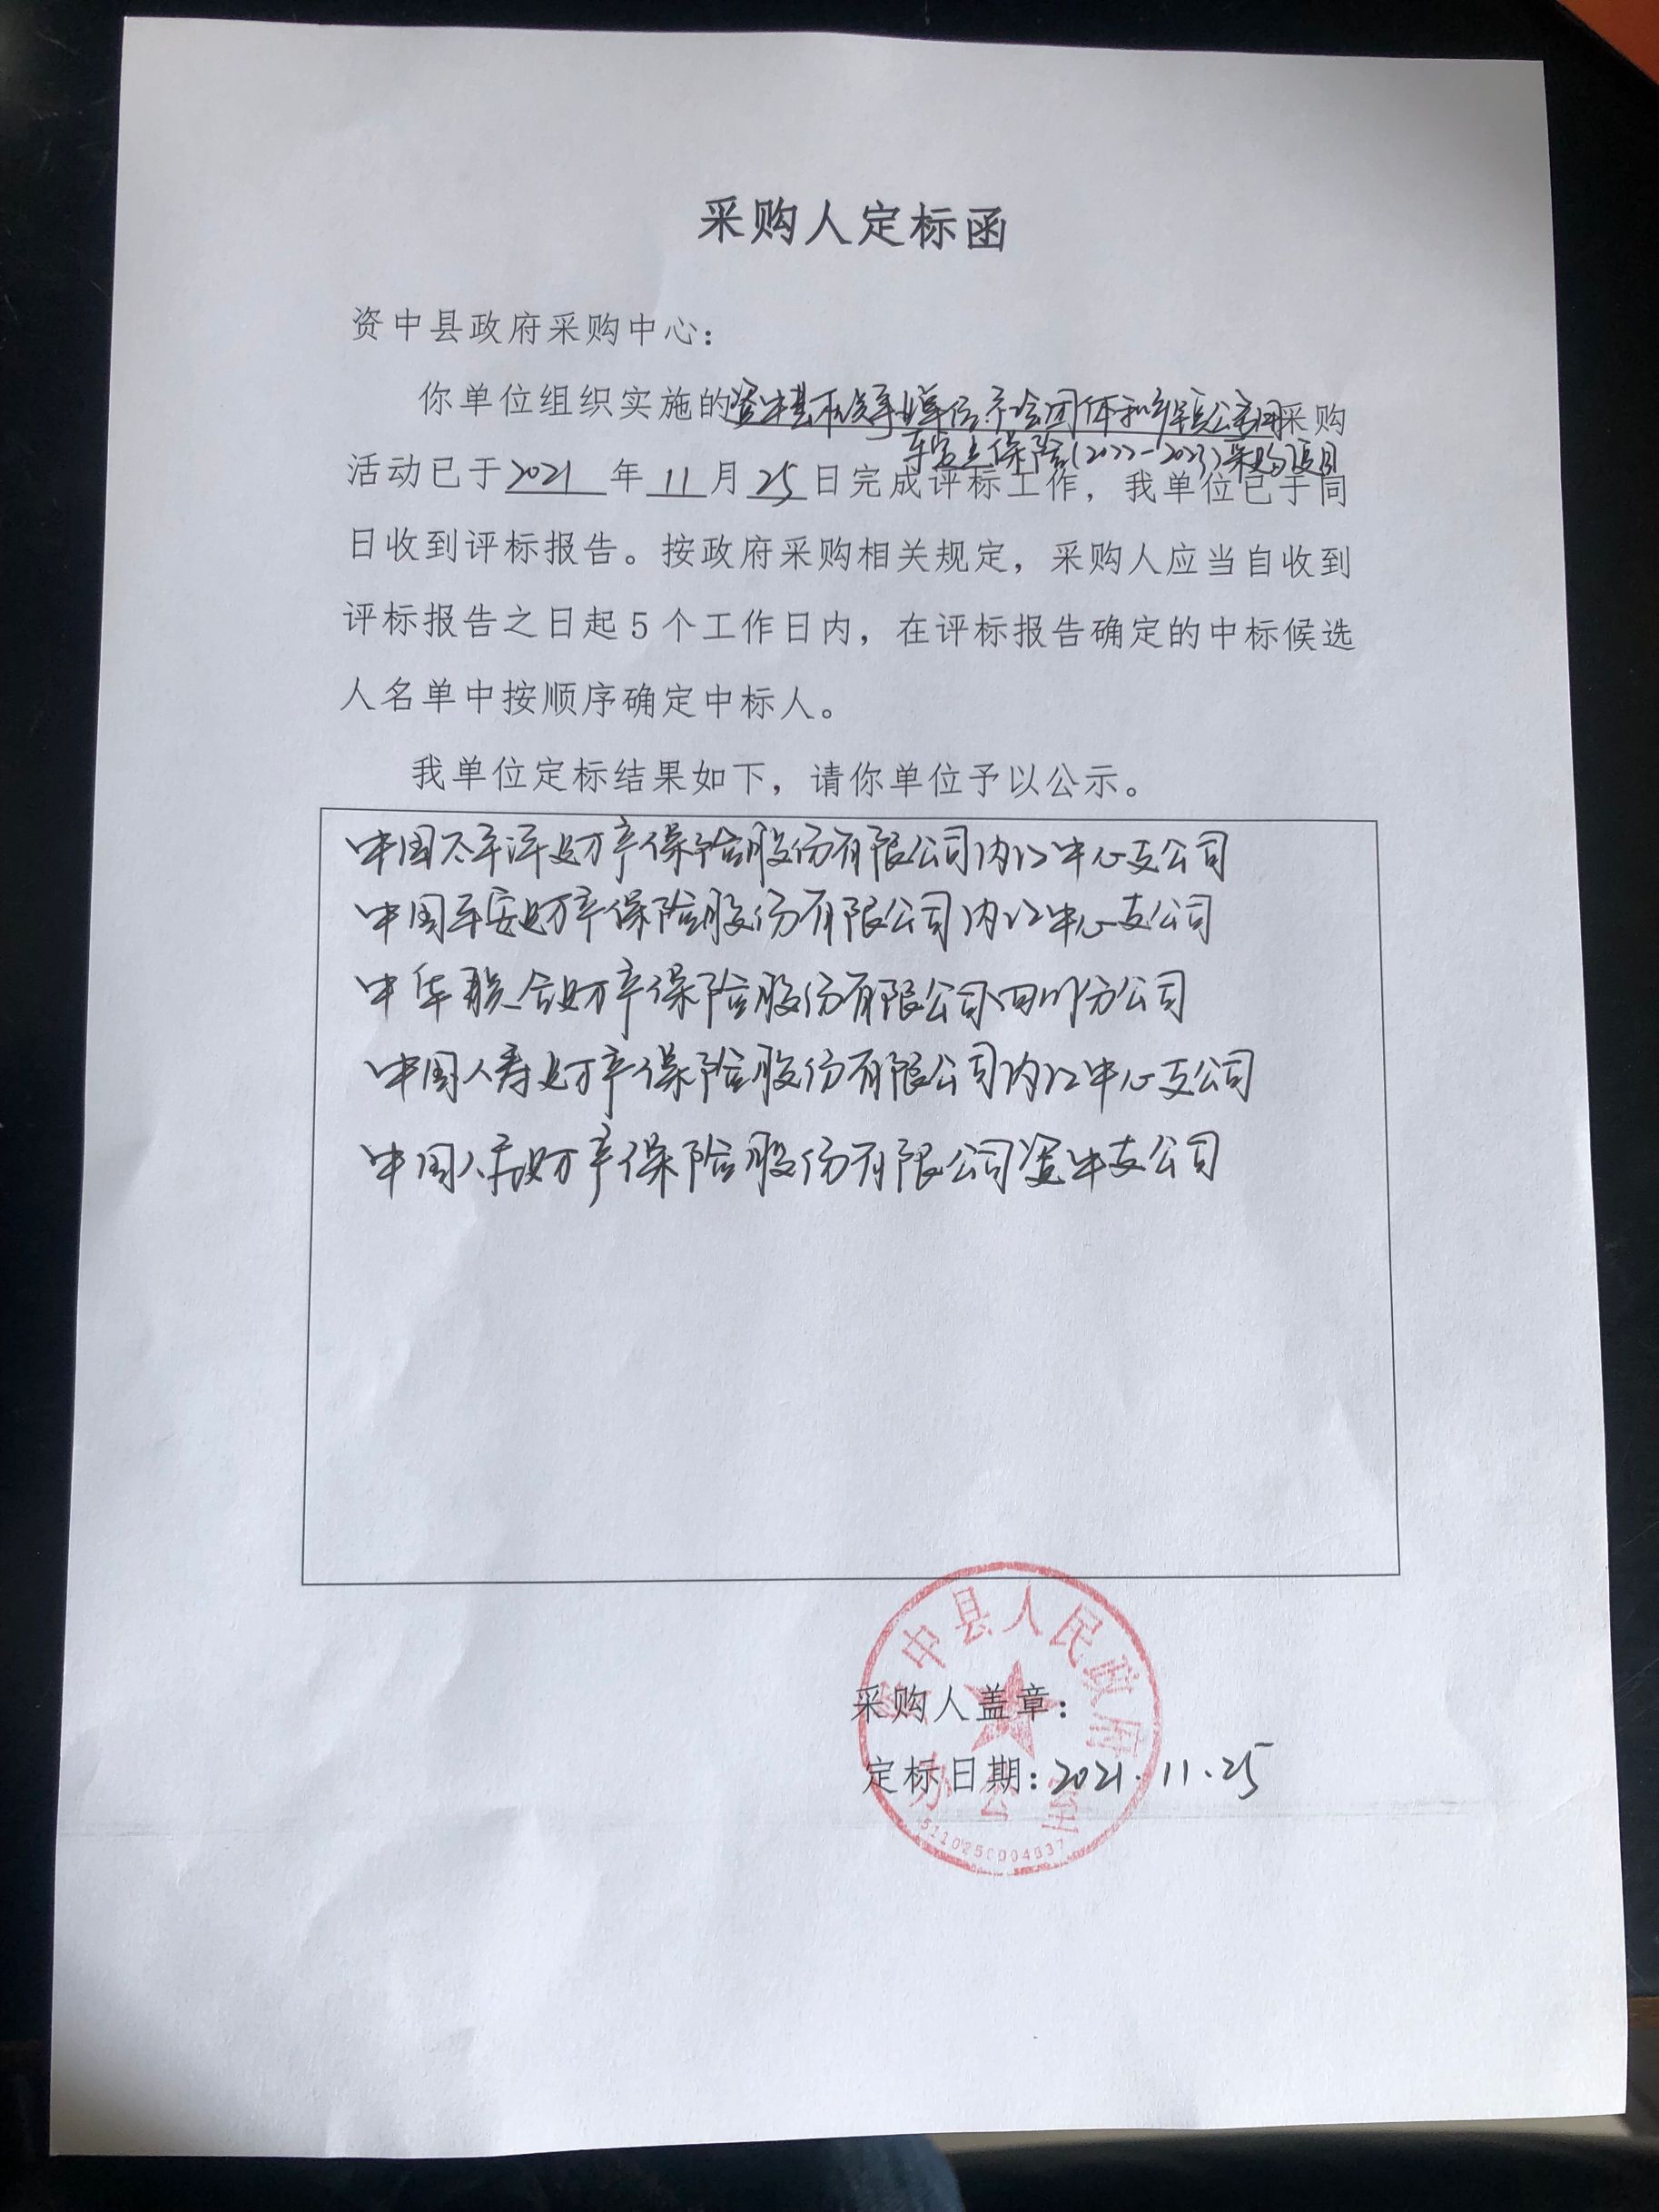 采购人定标函
资中县政府采购中心：
你单位组织实施的资中县行政事业单位、社会团体和乡镇公务用采购
车定点保险(2022-2023)采购项目
活动已于2021年11月25日完成评标工作，我单位已于同
日收到评标报告。按政府采购相关规定，采购人应当自收到
评标报告之日起5个工作日内，在评标报告确定的中标候选
人名单中按顺序确定中标人。
我单位定标结果如下，请你单位予以公示。
中国太平洋财产保险股份有限公司内江中心支公司
中国平安财产保险股份有限公司内江中心支公司
中华联合财产保险股份有限公司四川分公司
中国人寿财产保险股份有限公司内江中心支公司
中国人民财产保险股份有限公司资中支公司
资中县人民政府
采购人盖章：
定标日期：2021.11.25
办公室